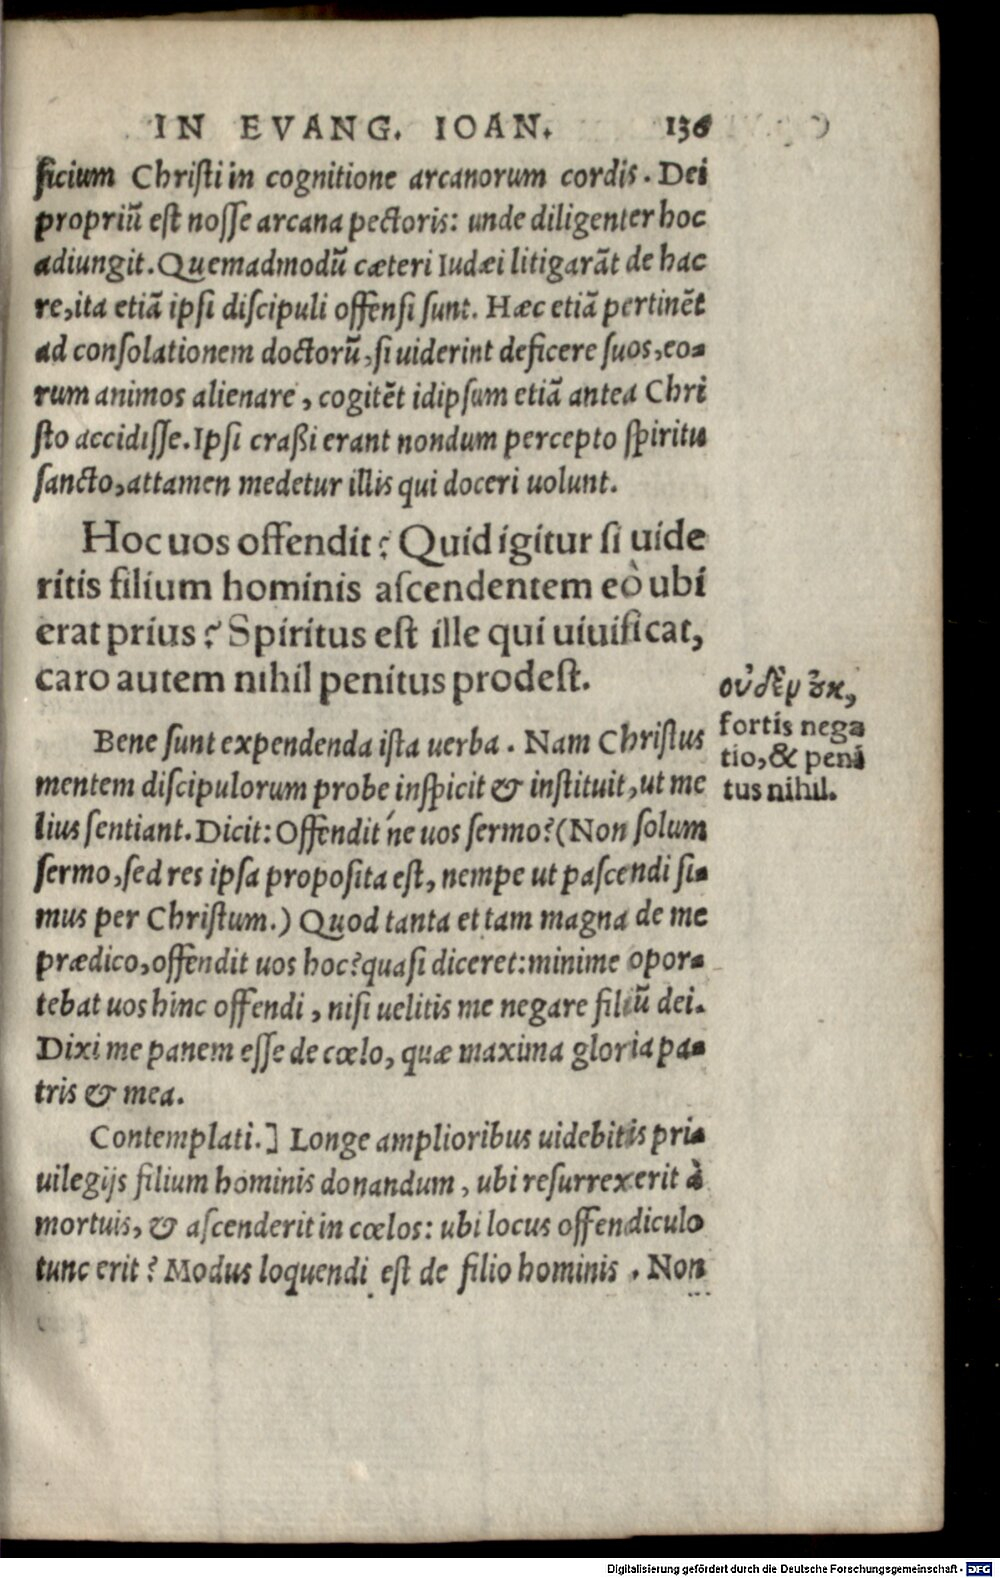 IN EVANG. IOAN. 136
ficium Chriſti in cognitione arcanorum cordis. Dei
propriũ eſt noſſe arcana pectoris: unde diligenter hoc
adiungit. Quemadmodũ cæteri Iudæi litigarãt de hac
re, ita etiã ipſi diſcipuli offenſi ſunt. Hæc etiã pertinẽt
ad conſolationem doctorũ, ſi uiderint deficere ſuos, eo-
rum animos alienare, cogitẽt idipſum etiã antea Chri
ſto accidiſſe. Ipſi craßi erant nondum percepto ſpiritu
ſancto, attamen medetur illis qui doceri uolunt.
Hoc uos offendit? Quid igitur ſi uide
ritis filium hominis aſcendentem eò ubi
erat prius? Spiritus eſt ille qui uiuificat,
caro autem nihil penitus prodeſt.
fortis nega
tio, & peni
tus nihil.
Bene ſunt expendenda iſta uerba. Nam Chriſtus
mentem diſcipulorum probe inſpicit & inſtituit, ut me
lius ſentiant. Dicit: Offendit ne uos ſermo? (Non ſolum
ſermo, ſed res ipſa propoſita eſt, nempe ut paſcendi ſi-
mus per Chriſtum.) Quod tanta et tam magna de me
prædico, offendit uos hoc? quaſi diceret: minime opor-
tebat uos hinc offendi, niſi uelitis me negare filiũ dei.
Dixi me panem eſſe de cœlo, quæ maxima gloria pa-
tris & mea.
Contemplati.] Longe amplioribus uidebitis pri-
uilegijs filium hominis donandum, ubi reſurrexerit à
mortuis, & aſcenderit in cœlos: ubi locus offendiculo
tunc erit? Modus loquendi eſt de filio hominis. Non
Digitalisierung gefördert durch die Deutsche Forschungsgemeinschaft - DFG